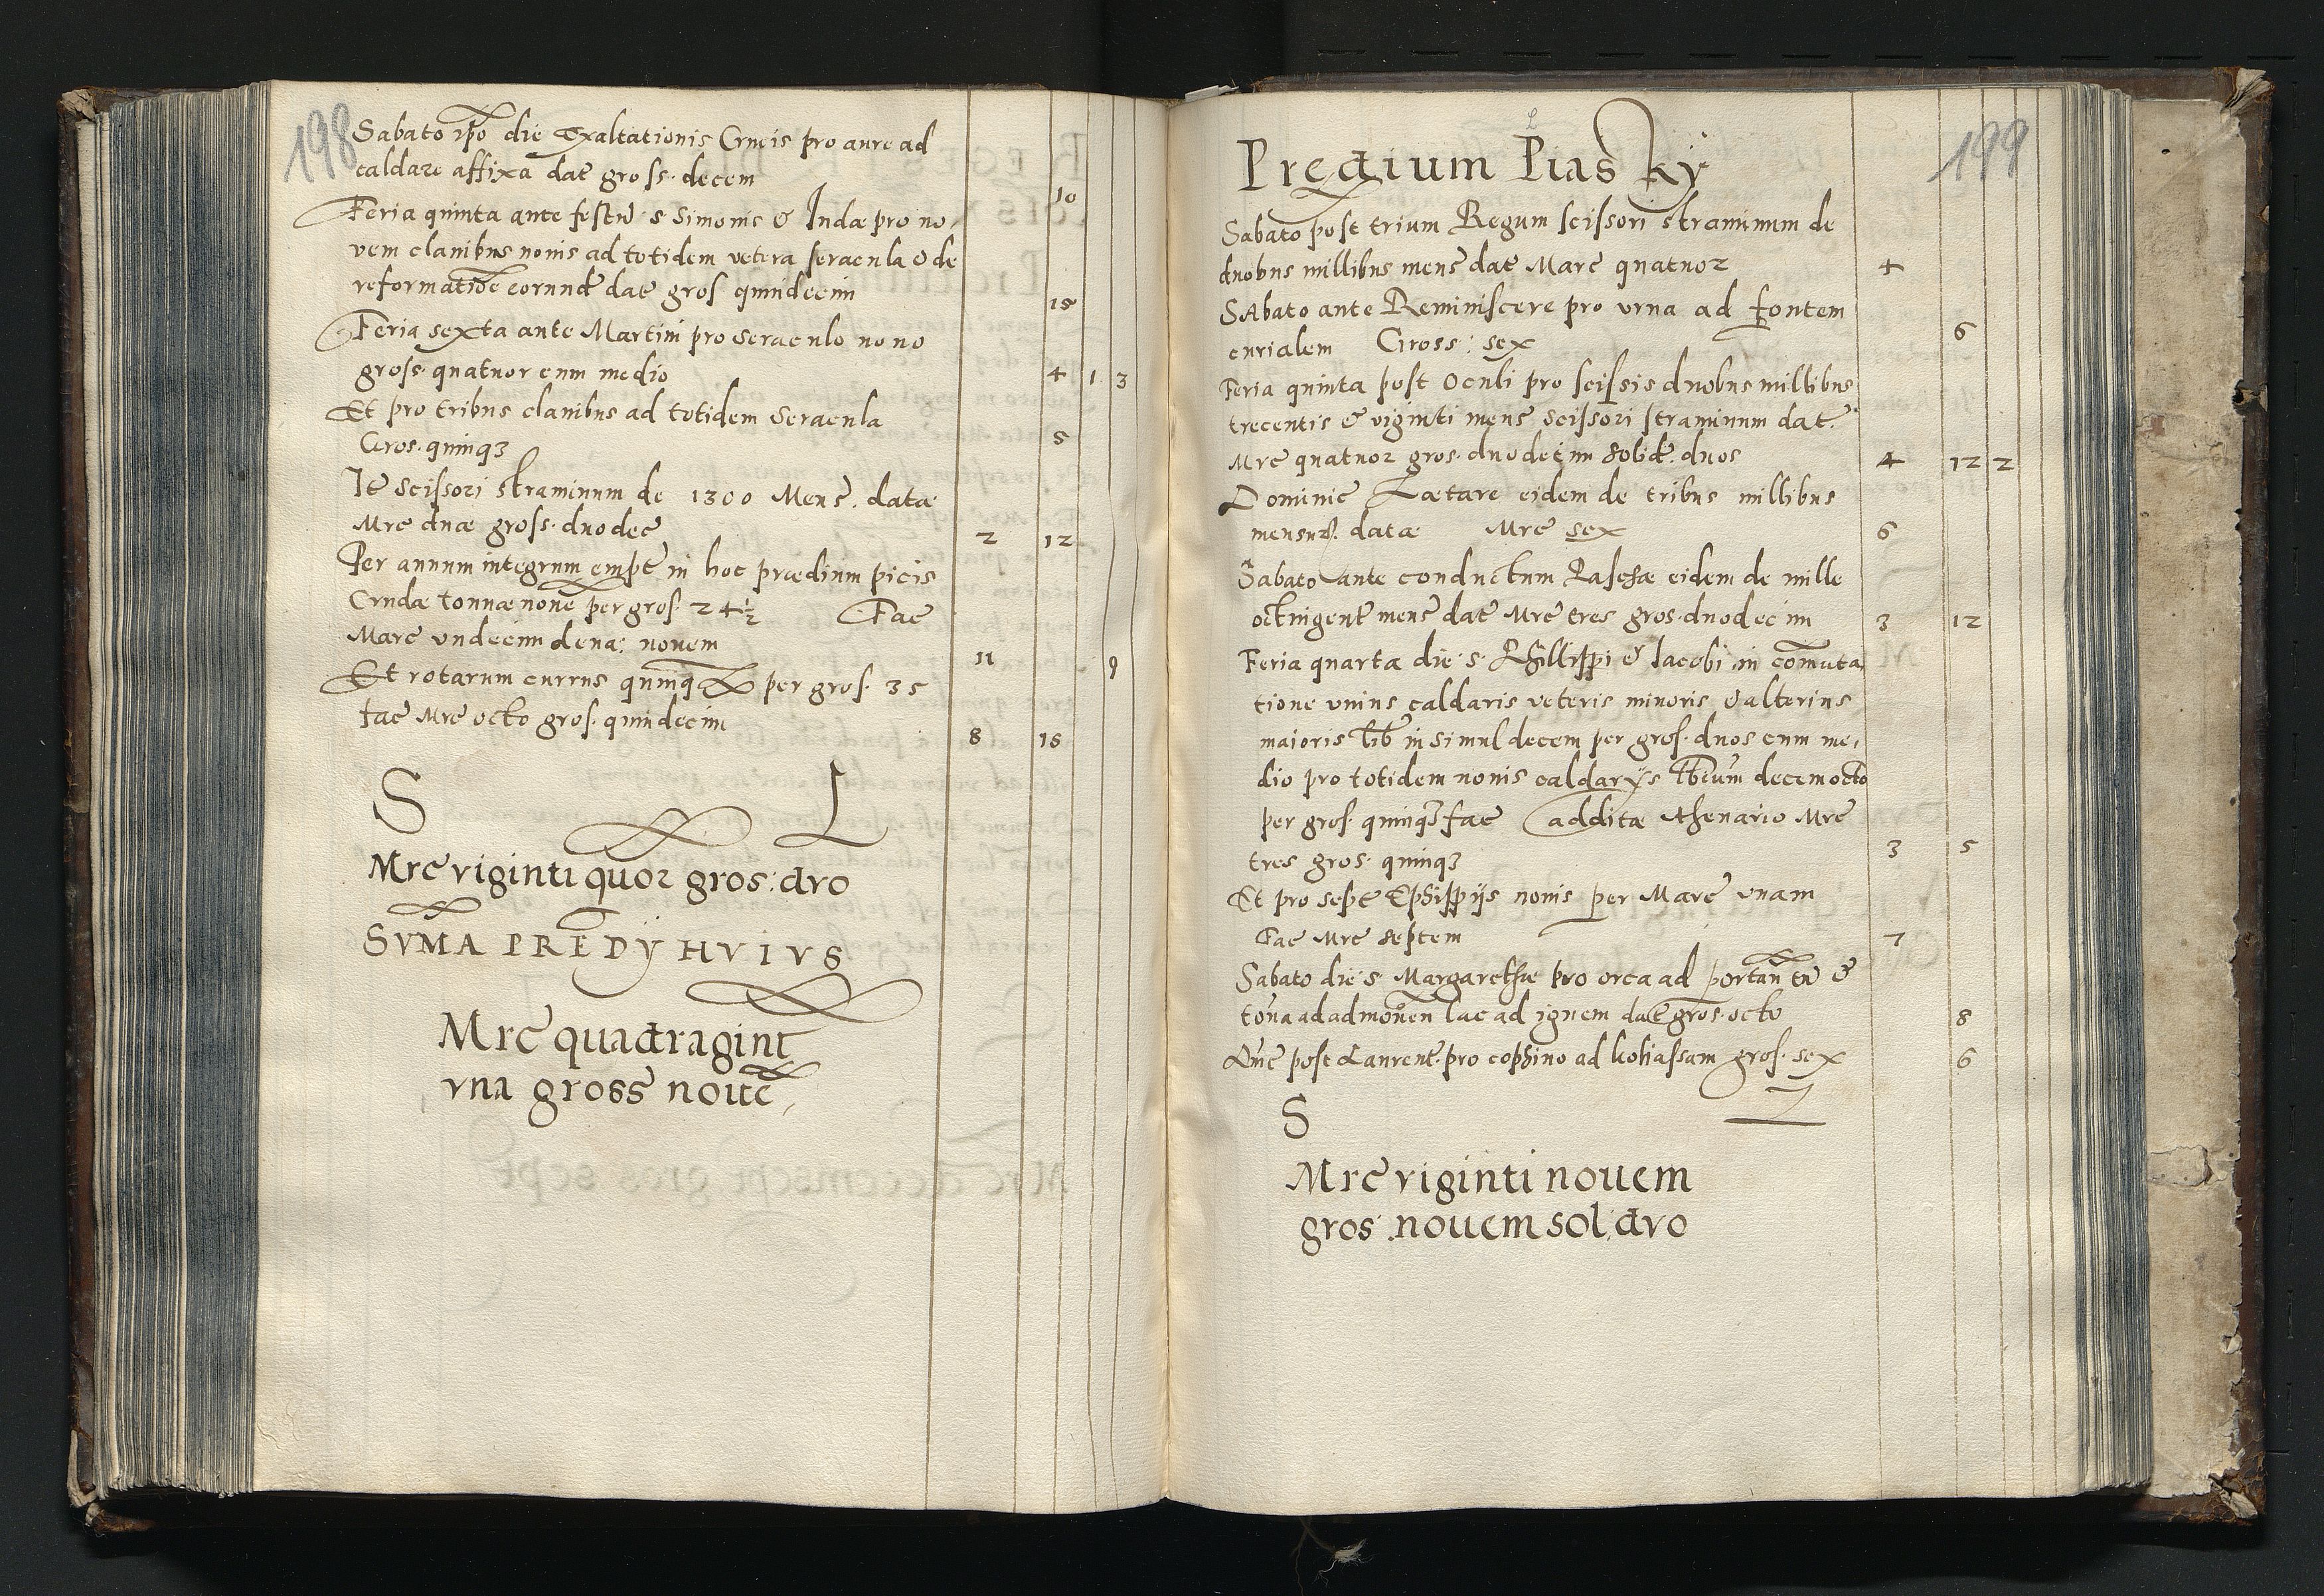 198
Sabato ip̄o die Exaltationis Crucis pro aure ad
caldare affixa dat gross. decem 10
Feria quinta ante festū s Simonis & Judæ pro no,
vem clauibus nouis ad totidem vetera seracula & de
reformatiōe eorund dat gros quindecim 15
Feria sexta ante Martini pro seraculo nouo
gross. quatuor cum medio 4 1 3
Et pro tribus clauibus ad totidem seracula
Gros. quinqȝ 5
Itē scissori straminum de 1300 Mens. datæ
Mrc duæ gross. duodec̄ 2 12
Per annum integrum empt in hoc prædium picis
Crudæ tonnæ noue per gros. 24½ Fac
Marc vndecim dena: nouem 11 9
Et rotarum currus quinq per gros. 35
fac Mrc octo gros. quindecim 8 15
S L
Mrc viginti quor gros: dvo
SVMA PREDŸ HVIVS
Mrc quadragint
vna gross nouē
199
Predium Piasky
Sabato post trium Regum scissori straminum de
duobus millibus mens dat Marc quatuor 4
SAbato ante Reminiscere pro vrna ad fontem
curialem Gross: sex 6
Feria quinta post Oculi pro scissis duobus millibus
trecentis & viginti mens scissori straminum dat.
Mrc quatuor gros. duodecim solid. duos 4 12 2
Dominic Lætare eidem de tribus millibus
mensur. datæ Mrc sex 6
Sabato ante conductum Paschæ eidem de mille
octingent mens dat Mrc tres gros. duodecim 3 12
Feria quarta die s. Phillippi & Iacobi in cōmuta
tione vnius caldaris veteris minoris & alterius
maioris lib in simul decem per gros. duos cum me,
dio pro totidem nouis caldarijs lbrum decem octo
per gros. quinqȝ fac addita thenario Mrc
tres gros. quinqȝ 3 5
Et pro sept Ephippijs nouis per Marc vnam
Fac Mrc septem 7
Sabato die s Margarethæ pro orca ad portan &
tōna ad admouen lac ad ignem dat gros. octo 8
Dnīc post Laurent. pro cophino ad koliassam gros. sex 6
S
Mrc viginti nouem
gros: nouem sol: dvo